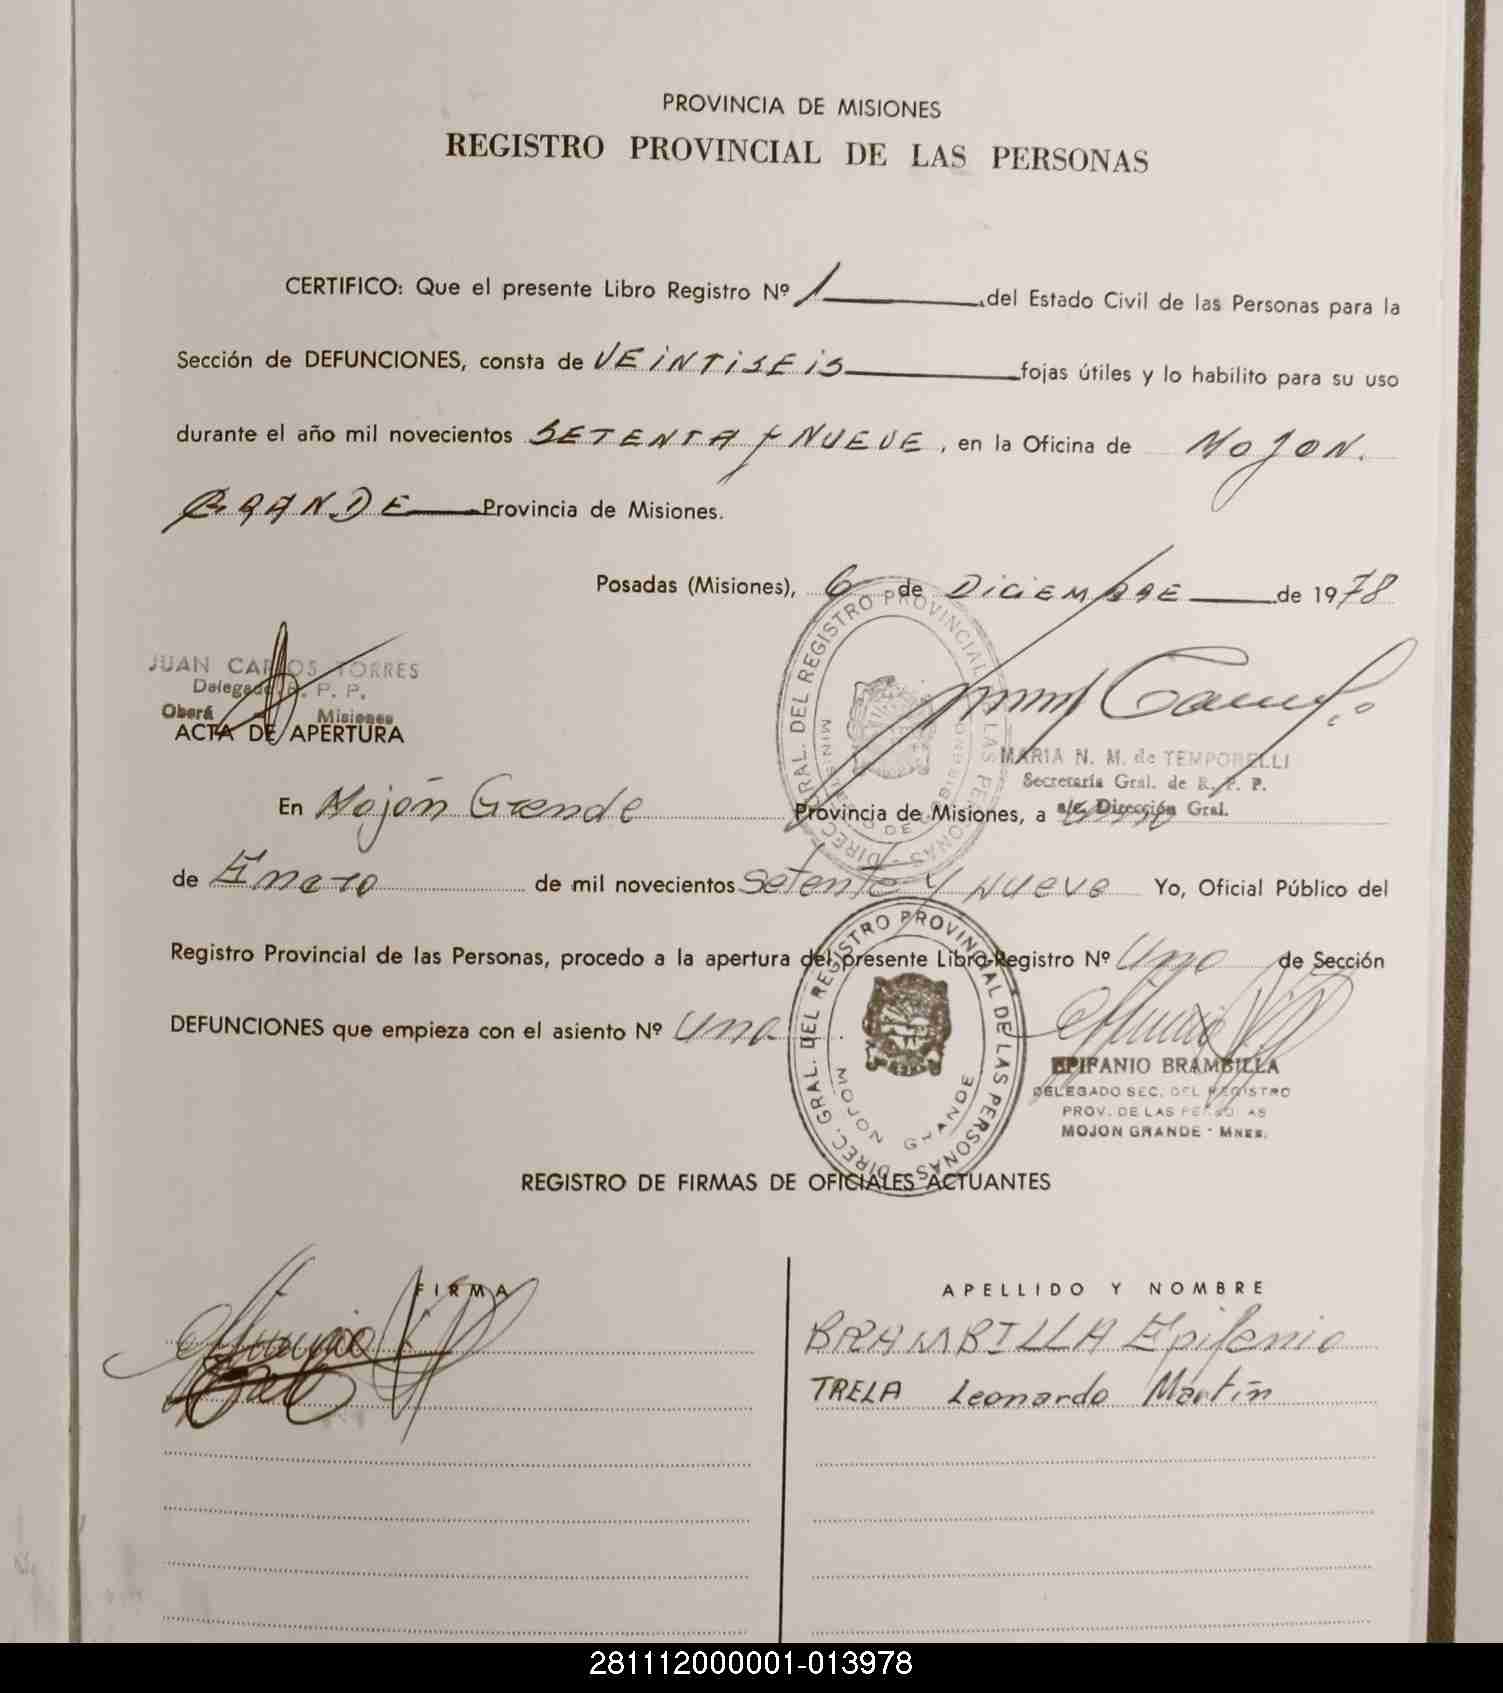 PROVINCIA DE MISIONES
REGISTRO PROVINCIAL DE LAS PERSONAS
CERTIFICO: Que el presente Libro Registro Nº 1 del Estado Civil de las Personas para la
Sección de DEFUNCIONES, consta de VEINTISEIS fojas útiles y lo habilito para su uso
durante el año mil novecientos SETENTA Y NUEVE, en la Oficina de MOJON
GRANDE Provincia de Misiones.
Posadas (Misiones), 6 de DICIEMBRE de 1978
JUAN CARLOS TORRES
Delegado R. P. P.
Oberá Misiones
ACTA DE APERTURA
DIREC. GRAL. DEL REGISTRO PROVINCIAL DE LAS PERSONAS
MARIA N. M. de TEMPORELLI
Secretaría Gral. de R. P. P.
a/c. Dirección Gral.
En Mojón Grande Provincia de Misiones, a
de Enero de mil novecientos Setenta y nueve Yo, Oficial Público del
Registro Provincial de las Personas, procedo a la apertura del presente Libro-Registro Nº Uno de Sección
DEFUNCIONES que empieza con el asiento Nº Uno
DIREC. GRAL. DEL REGISTRO PROVINCIAL DE LAS PERSONAS
MOJON GRANDE
EPIFANIO BRAMBILLA
DELEGADO SEC. DEL REGISTRO
PROV. DE LAS PERSONAS
MOJON GRANDE - MNES.
REGISTRO DE FIRMAS DE OFICIALES ACTUANTES
FIRMA APELLIDO Y NOMBRE
BRAMBILLA Epifanio
TRELA Leonardo Martín
281112000001-013978